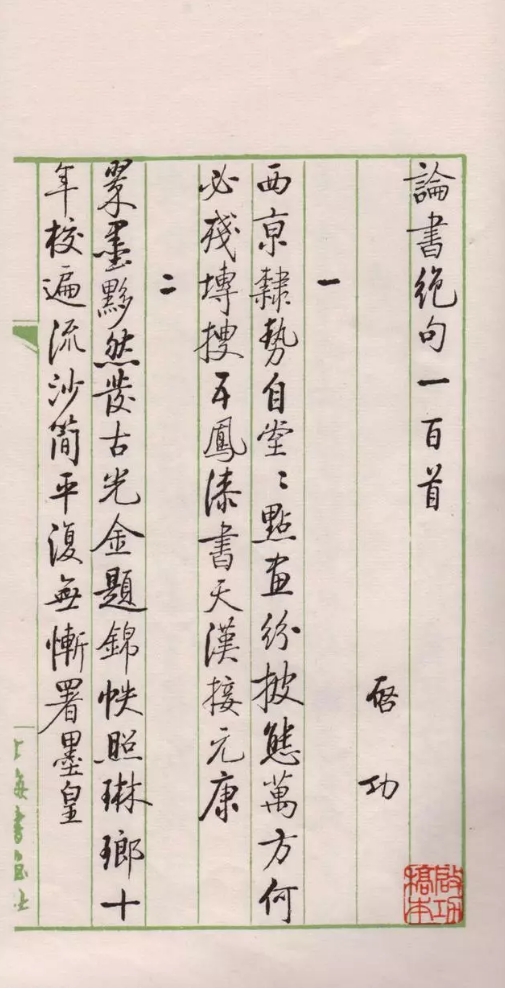 論書絕句一百首
啓功
一
西京隸勢自堂〻點畫紛披態萬方何
必殘塼搜五鳳漆書天漢接元康
二
翠墨黟然發古光金題錦帙照琳瑯十
年校遍流沙簡平復無慚署墨皇
啟功稿本
上海書画社